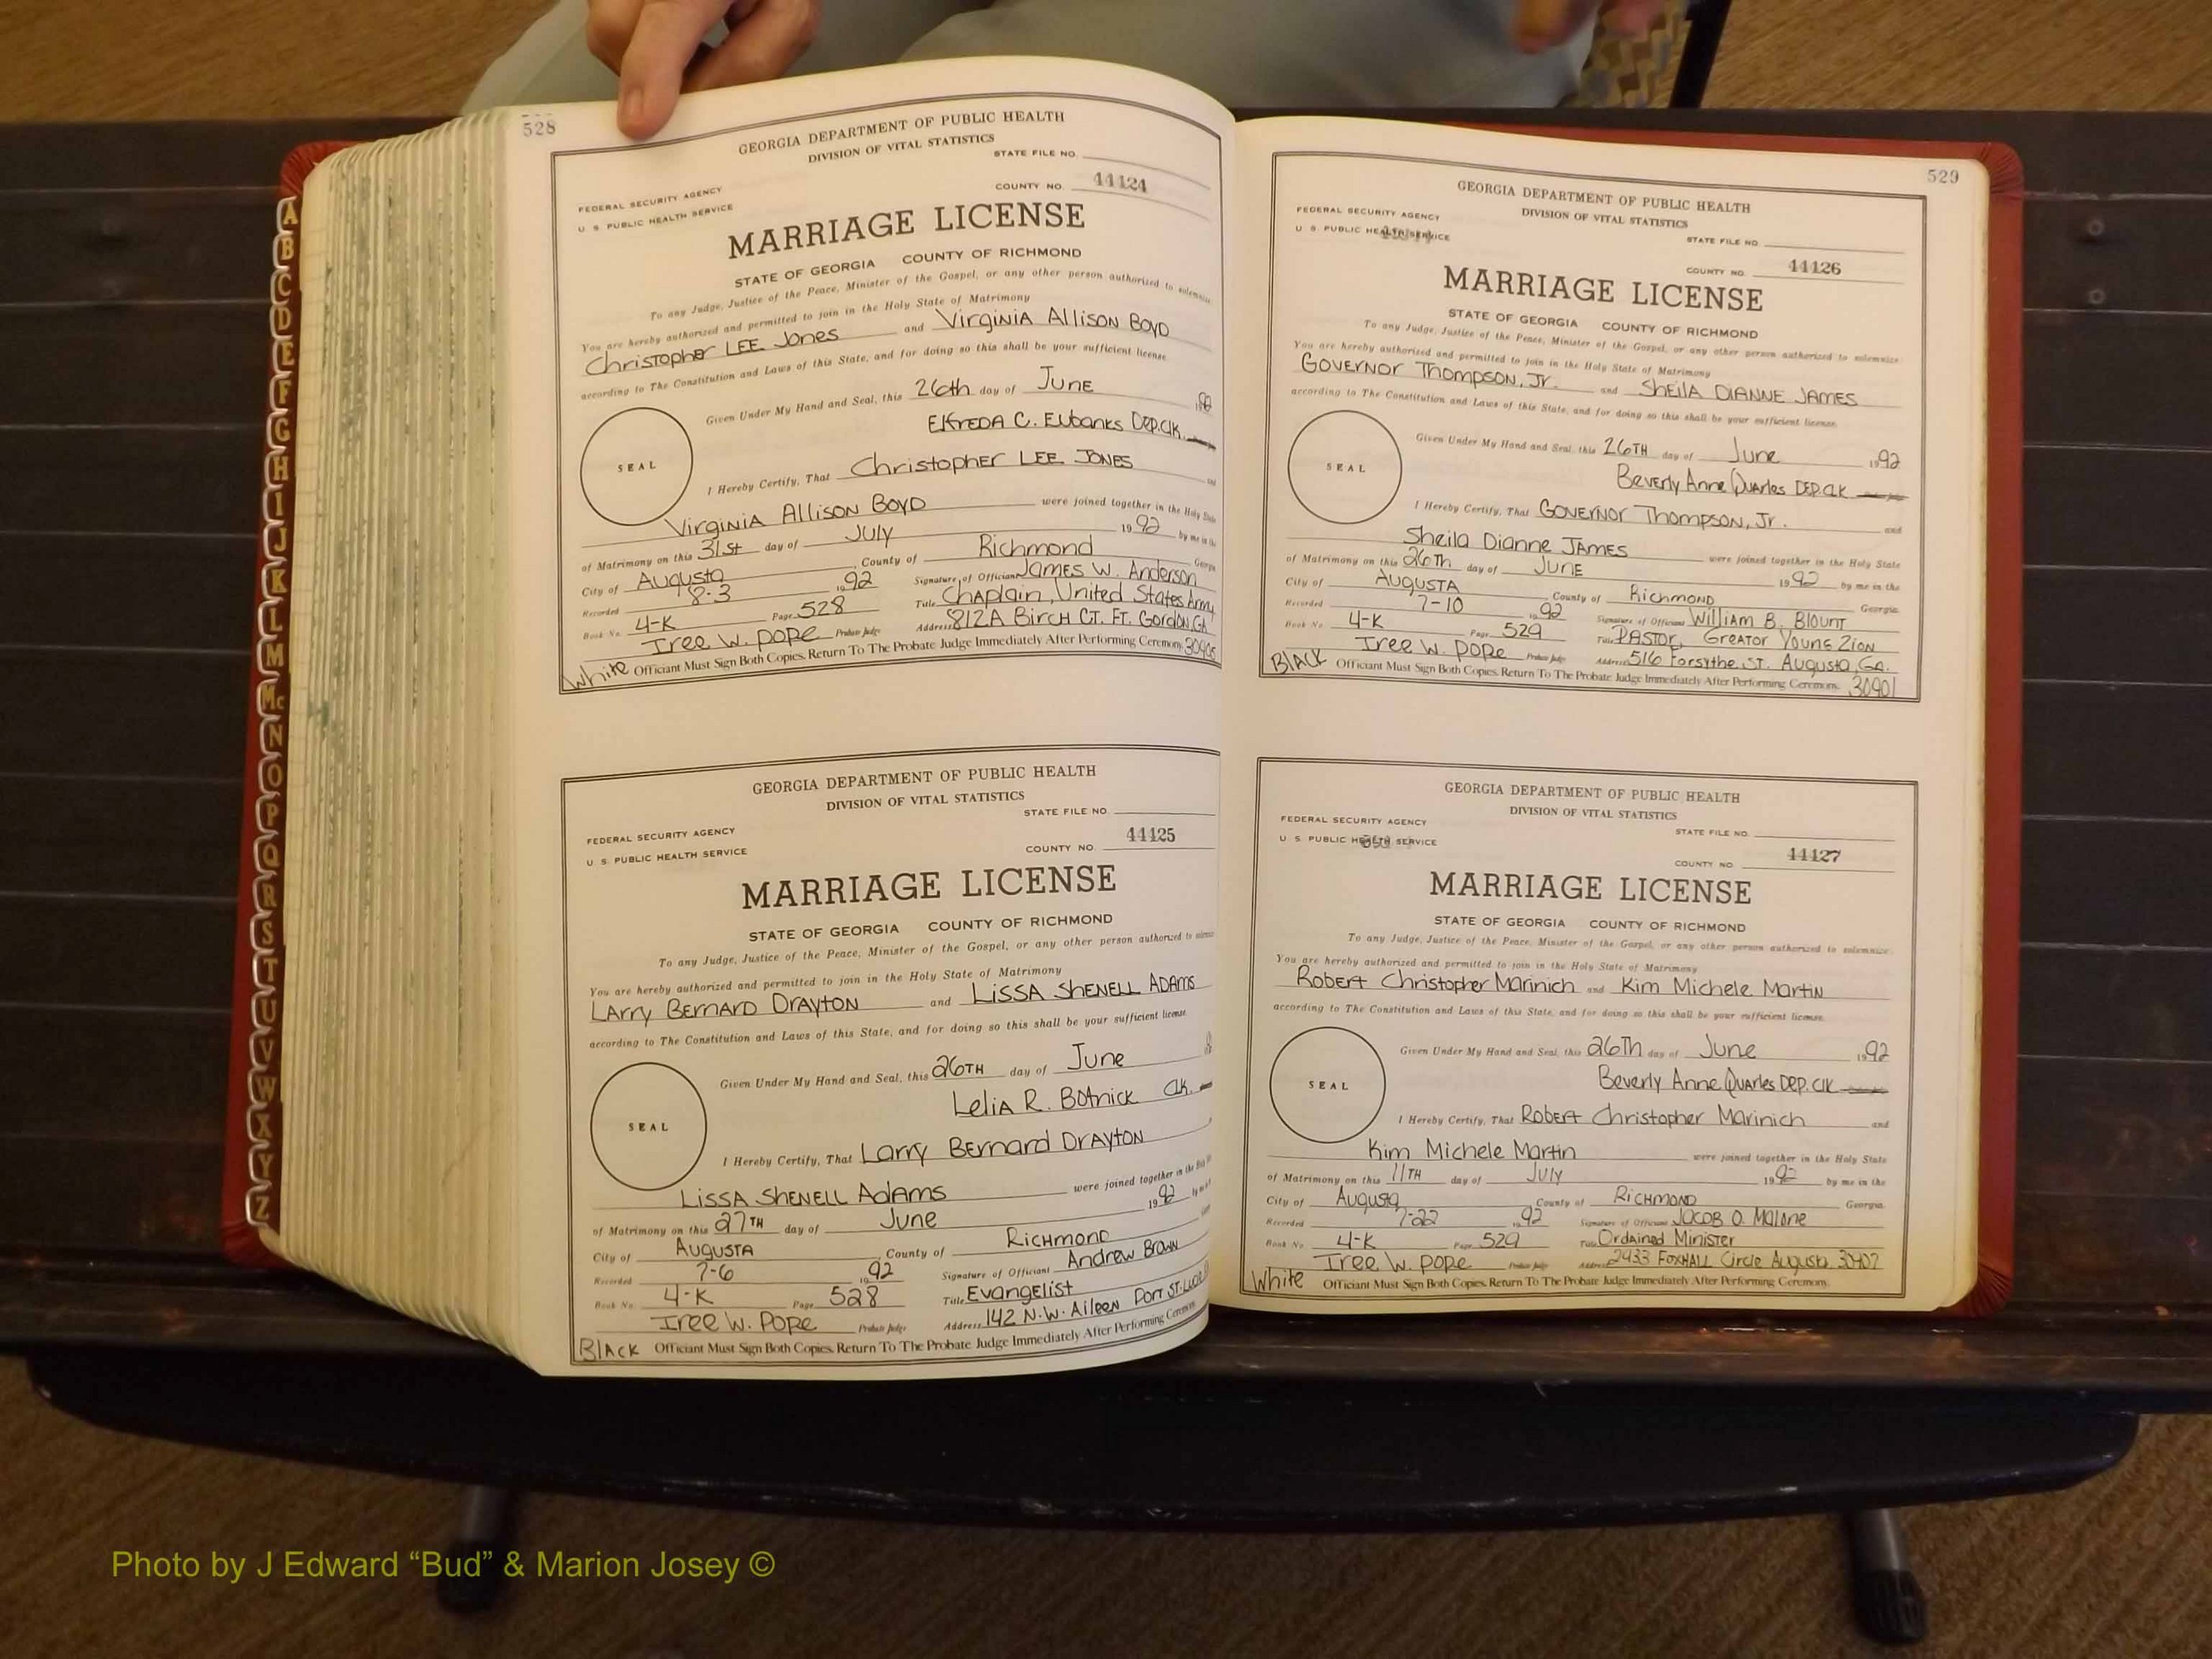 528
GEORGIA DEPARTMENT OF PUBLIC HEALTH
DIVISION OF VITAL STATISTICS
STATE FILE NO.
FEDERAL SECURITY AGENCY
U. S. PUBLIC HEALTH SERVICE
COUNTY NO. 44124
MARRIAGE LICENSE
STATE OF GEORGIA COUNTY OF RICHMOND
To any Judge, Justice of the Peace, Minister of the Gospel, or any other person authorized to solemnize
You are hereby authorized and permitted to join in the Holy State of Matrimony
Christopher LEE Jones and Virginia Allison Boyd
according to The Constitution and Laws of this State, and for doing so this shall be your sufficient license
Given Under My Hand and Seal, this 26th day of June
Elfreda C. Eubanks Dep.Clk.
SEAL
I Hereby Certify, That Christopher LEE JONES and
Virginia Allison Boyd were joined together in the Holy State
of Matrimony on this 31st day of July 1992 by me in the
City of Augusta, County of Richmond Georgia
Recorded 8-3 1992 Signature of Officiant James W. Anderson
Book No. 4-K Page 528 Title Chaplain, United States Army
Iree W. Pope Probate Judge Address 812A Birch CT. FT. Gordon, GA 30905
White Officiant Must Sign Both Copies. Return To The Probate Judge Immediately After Performing Ceremony.
GEORGIA DEPARTMENT OF PUBLIC HEALTH
DIVISION OF VITAL STATISTICS
STATE FILE NO.
FEDERAL SECURITY AGENCY
U. S. PUBLIC HEALTH SERVICE
COUNTY NO. 44125
MARRIAGE LICENSE
STATE OF GEORGIA COUNTY OF RICHMOND
To any Judge, Justice of the Peace, Minister of the Gospel, or any other person authorized to solemnize
You are hereby authorized and permitted to join in the Holy State of Matrimony
Larry Bernard Drayton and Lissa Shenell Adams
according to The Constitution and Laws of this State, and for doing so this shall be your sufficient license.
Given Under My Hand and Seal, this 26TH day of June
Lelia R. Botnick Clk.
SEAL
I Hereby Certify, That Larry Bernard Drayton
Lissa Shenell Adams were joined together in the Holy
of Matrimony on this 27TH day of June 1992
City of Augusta, County of Richmond
Recorded 7-6 1992 Signature of Officiant Andrew Brown
Book No. 4-K Page 528 Title Evangelist
Iree W. Pope Probate Judge Address 142 N.W. Aileen Port St. Lucie
Black Officiant Must Sign Both Copies. Return To The Probate Judge Immediately After Performing Ceremony.
529
GEORGIA DEPARTMENT OF PUBLIC HEALTH
DIVISION OF VITAL STATISTICS
FEDERAL SECURITY AGENCY
U. S. PUBLIC HEALTH SERVICE
STATE FILE NO.
COUNTY NO. 44126
MARRIAGE LICENSE
STATE OF GEORGIA COUNTY OF RICHMOND
To any Judge, Justice of the Peace, Minister of the Gospel, or any other person authorized to solemnize
You are hereby authorized and permitted to join in the Holy State of Matrimony
Governor Thompson, Jr. and Sheila Dianne James
according to The Constitution and Laws of this State, and for doing so this shall be your sufficient license.
Given Under My Hand and Seal, this 26TH day of June 1992
Beverly Anne Quarles DEP.CLK
SEAL
I Hereby Certify, That Governor Thompson, Jr. and
Sheila Dianne James were joined together in the Holy State
of Matrimony on this 26Th day of June 1992 by me in the
City of Augusta, County of Richmond Georgia
Recorded 7-10 1992 Signature of Officiant William B. Blount
Book No. 4-K Page 529 Title Pastor, Greator Young Zion
Iree W. Pope Probate Judge Address 516 Forsythe St. Augusta, GA. 30901
Black Officiant Must Sign Both Copies. Return To The Probate Judge Immediately After Performing Ceremony.
GEORGIA DEPARTMENT OF PUBLIC HEALTH
DIVISION OF VITAL STATISTICS
FEDERAL SECURITY AGENCY
U. S. PUBLIC HEALTH SERVICE
STATE FILE NO.
COUNTY NO 44127
MARRIAGE LICENSE
STATE OF GEORGIA COUNTY OF RICHMOND
To any Judge, Justice of the Peace, Minister of the Gospel, or any other person authorized to solemnize
You are hereby authorized and permitted to join in the Holy State of Matrimony
Robert Christopher Marinich and Kim Michele Martin
according to The Constitution and Laws of this State, and for doing so this shall be your sufficient license.
Given Under My Hand and Seal, this 26Th day of June 1992
Beverly Anne Quarles DEP. Clk
SEAL
I Hereby Certify, That Robert Christopher Marinich and
Kim Michele Martin were joined together in the Holy State
of Matrimony on this 11TH day of July 1992 by me in the
City of Augusta County of Richmond Georgia
Recorded 7-22 1992 Signature of Officiant Jacob O. Malone
Book No 4-K Page 529 Title Ordained Minister
Iree W. Pope Probate Judge Address 2433 Foxhall Circle Augusta 30907
White Officiant Must Sign Both Copies. Return To The Probate Judge Immediately After Performing Ceremony.
A
B
C
D
E
F
G
H
I
J
K
L
M
Mc
N
O
P
Q
R
S
T
U
V
W
X
Y
Z
Photo by J Edward “Bud” & Marion Josey ©